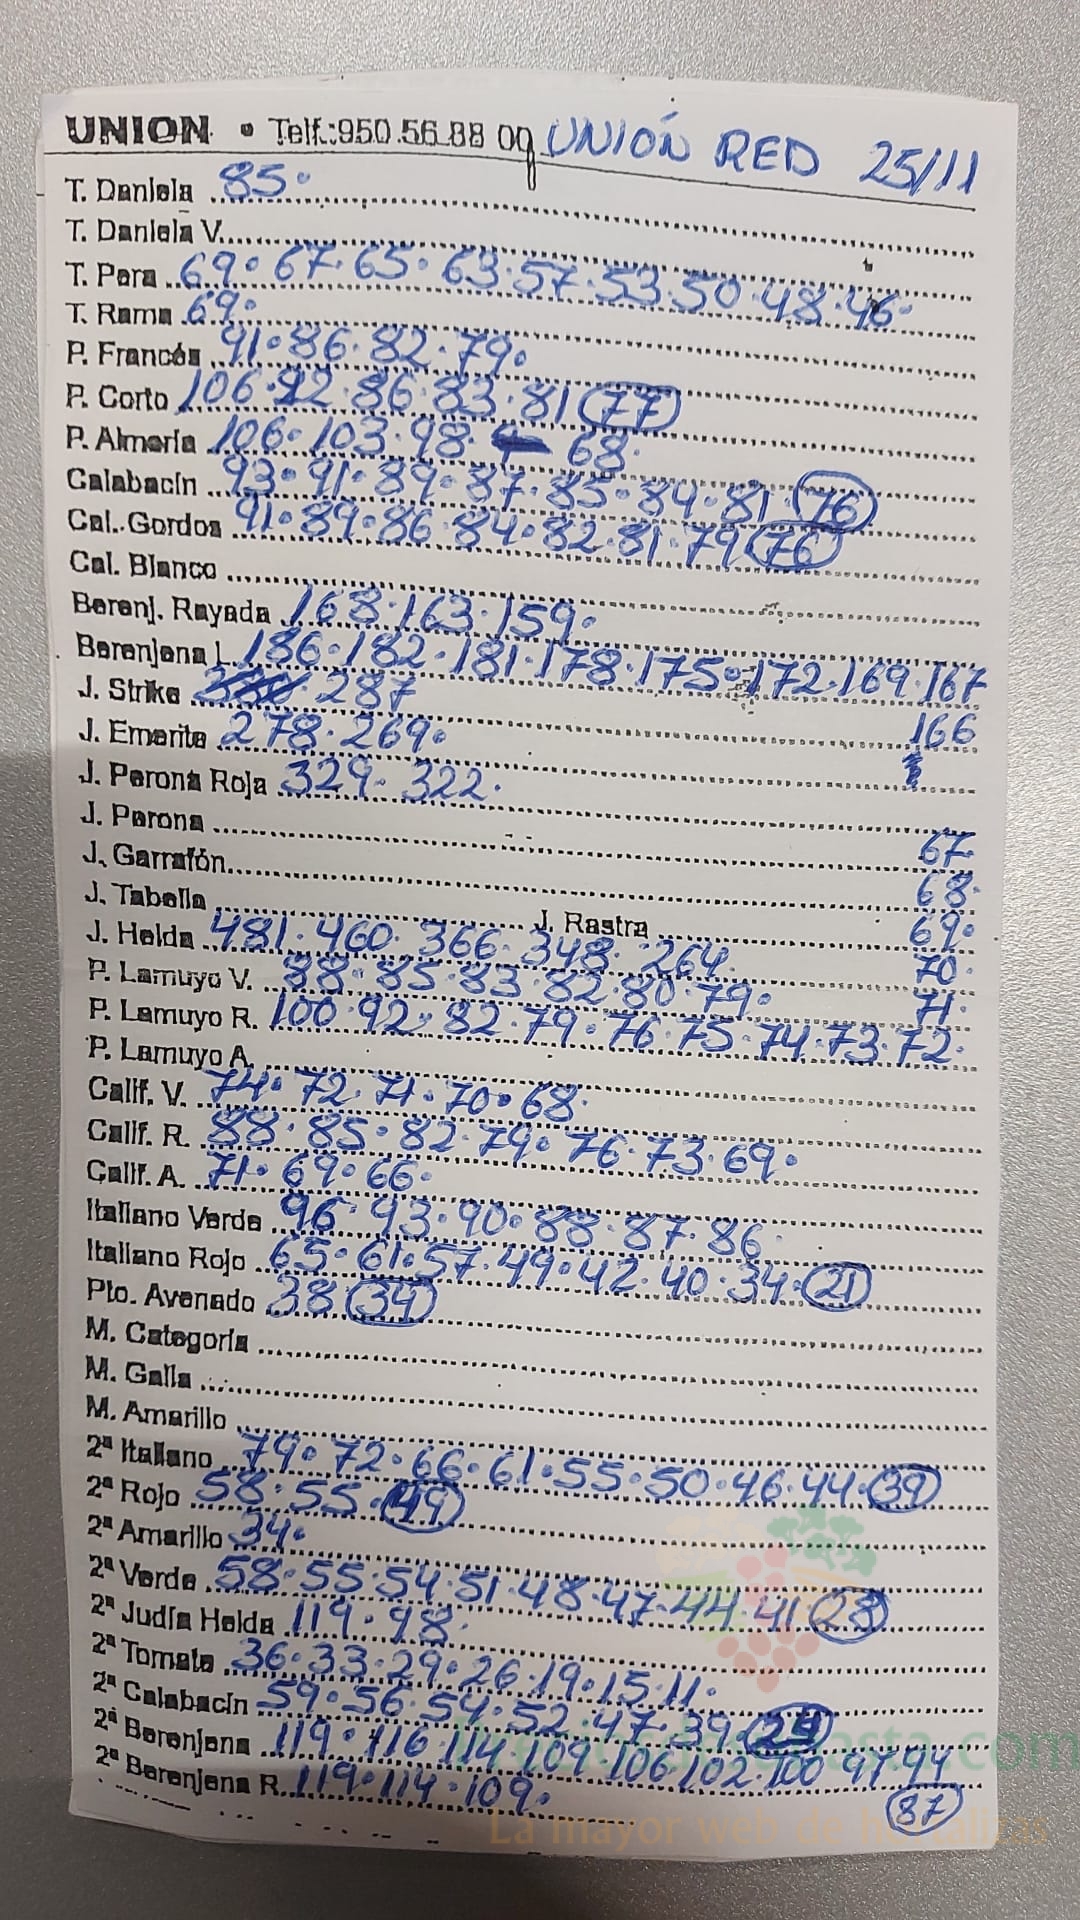 UNION • Telf.:950.56.88 00 UNIÓN RED 25/11
T. Daniela 85.
T. Daniela V.
T. Pera 69. 67. 65. 63. 57. 53. 50. 48. 46.
T. Rama 69.
P. Francés 91. 86. 82. 79.
P. Corto 106. 92. 86. 83. 81 77
P. Almería 106. 103. 98. 68.
Calabacín 93. 91. 89. 87. 85. 84. 81. 76
Cal. Gordos 91. 89. 86. 84. 82. 81. 79 76
Cal. Blanco
Berenj. Rayada 168. 163. 159.
Berenjena L. 186. 182. 181. 178. 175. 172. 169. 167
166
J. Strike 287
J. Emerite 278. 269.
J. Perona Roja 329. 322.
J. Perona
J. Garrafón
J. Tabella J. Rastra
J. Helda 481. 460. 366. 348. 264.
P. Lamuyo V. 88. 85. 83. 82. 80. 79.
P. Lamuyo R. 100. 92. 82. 79. 76. 75. 74. 73. 72.
71.
70.
69.
68.
67
P. Lamuyo A.
Calif. V. 74. 72. 71. 70. 68.
Calif. R. 88. 85. 82. 79. 76. 73. 69.
Calif. A. 71. 69. 66.
Italiano Verde 96. 93. 90. 88. 87. 86.
Italiano Rojo 65. 61. 57. 49. 42. 40. 34. 21
Pto. Avenado 38 34
M. Categoría
M. Galia
M. Amarillo
2ª Italiano 79. 72. 66. 61. 55. 50. 46. 44. 39
2ª Rojo 58. 55. 49
2ª Amarillo 34.
2ª Verde 58. 55. 54. 51. 48. 47. 44. 41
2ª Judía Helda 119. 98.
2ª Tomate 36. 33. 29. 26. 19. 15. 11.
2ª Calabacín 59. 56. 54. 52. 47. 39.
2ª Berenjena 119. 116. 114. 109. 106. 102. 100 97. 94
87
2ª Berenjena R. 119. 114. 109.
La mayor web de hortalizas